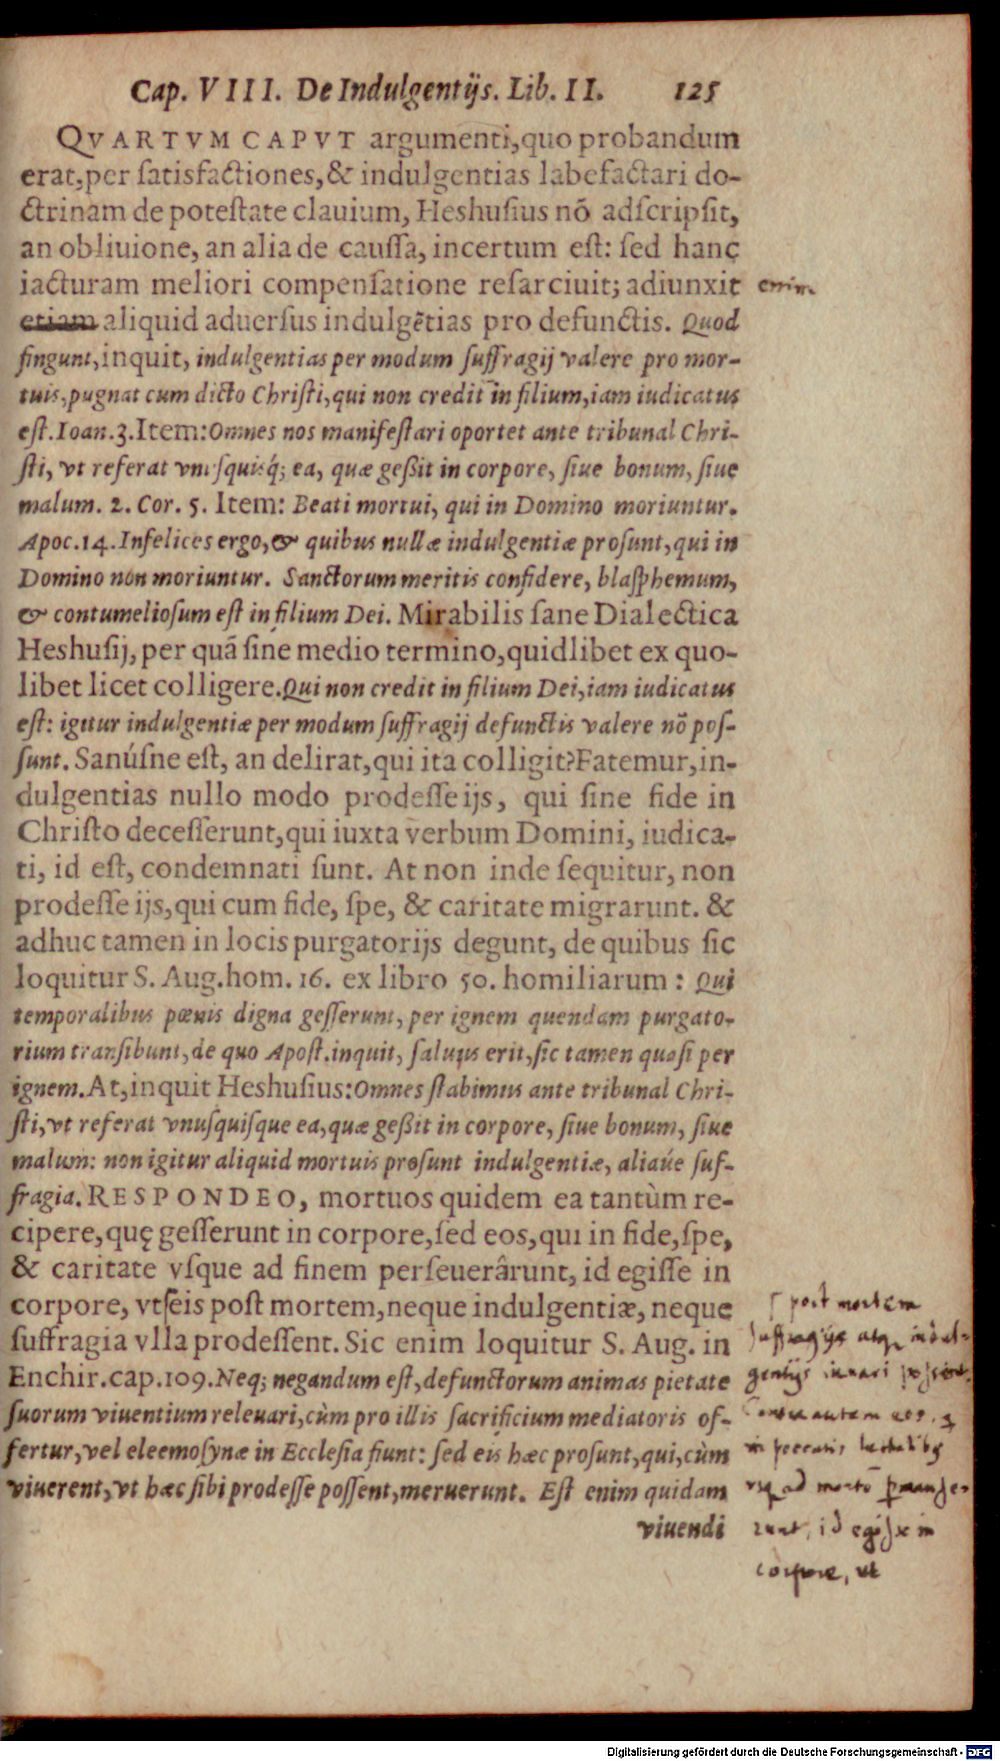 Cap. VIII. De Indulgentijs. Lib. II. 125
QVARTVM CAPVT argumenti, quo probandum
erat, per ſatisfactiones, & indulgentias labefactari do-
ctrinam de poteſtate clauium, Heshuſius nõ adſcripſit,
an obliuione, an alia de cauſſa, incertum eſt: ſed hanc
iacturam meliori compenſatione reſarciuit; adiunxit enim
etiam aliquid aduerſus indulgẽtias pro defunctis. Quod
fingunt, inquit, indulgentias per modum ſuffragij valere pro mor-
tuis, pugnat cum dicto Chriſti, qui non credit in filium, iam iudicatus
eſt. Ioan. 3. Item: Omnes nos manifeſtari oportet ante tribunal Chri-
ſti, vt referat vnuſquiſq́; ea, quæ geßit in corpore, ſiue bonum, ſiue
malum. 2. Cor. 5. Item: Beati mortui, qui in Domino moriuntur.
Apoc. 14. Infelices ergo, & quibus nullæ indulgentiæ proſunt, qui in
Domino non moriuntur. Sanctorum meritis confidere, blaſphemum,
& contumelioſum eſt in filium Dei. Mirabilis ſane Dialectica
Heshuſij, per quã ſine medio termino, quidlibet ex quo-
libet licet colligere. Qui non credit in filium Dei, iam iudicatus
eſt: igitur indulgentiæ per modum ſuffragij defunctis valere nõ poſ-
ſunt. Sanúſne eſt, an delirat, qui ita colligit? Fatemur, in-
dulgentias nullo modo prodeſſe ijs, qui ſine fide in
Chriſto deceſſerunt, qui iuxta verbum Domini, iudica-
ti, id eſt, condemnati ſunt. At non inde ſequitur, non
prodeſſe ijs, qui cum fide, ſpe, & caritate migrarunt. &
adhuc tamen in locis purgatorijs degunt, de quibus ſic
loquitur S. Aug. hom. 16. ex libro 50. homiliarum: Qui
temporalibus pœnis digna geſſerunt, per ignem quendam purgato-
rium tranſibunt, de quo Apoſt. inquit, ſaluus erit, ſic tamen quaſi per
ignem. At, inquit Heshuſius: Omnes ſtabimus ante tribunal Chri-
ſti, vt referat vnuſquiſque ea, quæ geßit in corpore, ſiue bonum, ſiue
malum: non igitur aliquid mortuis proſunt indulgentiæ, aliaúe ſuf-
fragia. RESPONDEO, mortuos quidem ea tantùm re-
cipere, quę geſſerunt in corpore, ſed eos, qui in fide, ſpe,
& caritate vſque ad finem perſeuerârunt, id egiſſe in
corpore, vt ſeis poſt mortem, neque indulgentiæ, neque
ſuffragia vlla prodeſſent. Sic enim loquitur S. Aug. in
Enchir. cap. 109. Neq; negandum eſt, defunctorum animas pietate
ſuorum viuentium releuari, cùm pro illis ſacrificium mediatoris of-
fertur, vel eleemoſynæ in Eccleſia fiunt: ſed eis hæc proſunt, qui, cùm
viuerent, vt hæc ſibi prodeſſe poſſent, meruerunt. Eſt enim quidam
viuendi
post mortem
suffragijs atq. indul-
gentijs iuuari possent.
Contra autem eos, q
in peccatis lethalib9
usq ad mortẽ permanse-
runt, id egisse in
corpore, ut